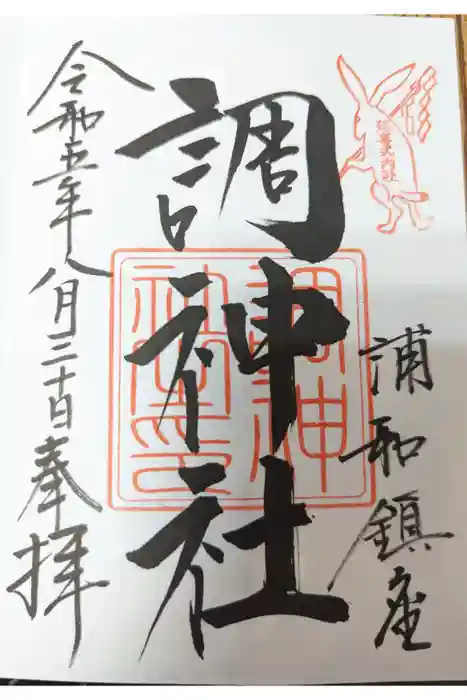 延喜式内社
浦和鎮座
調神社
令和五年八月三十日奉拝